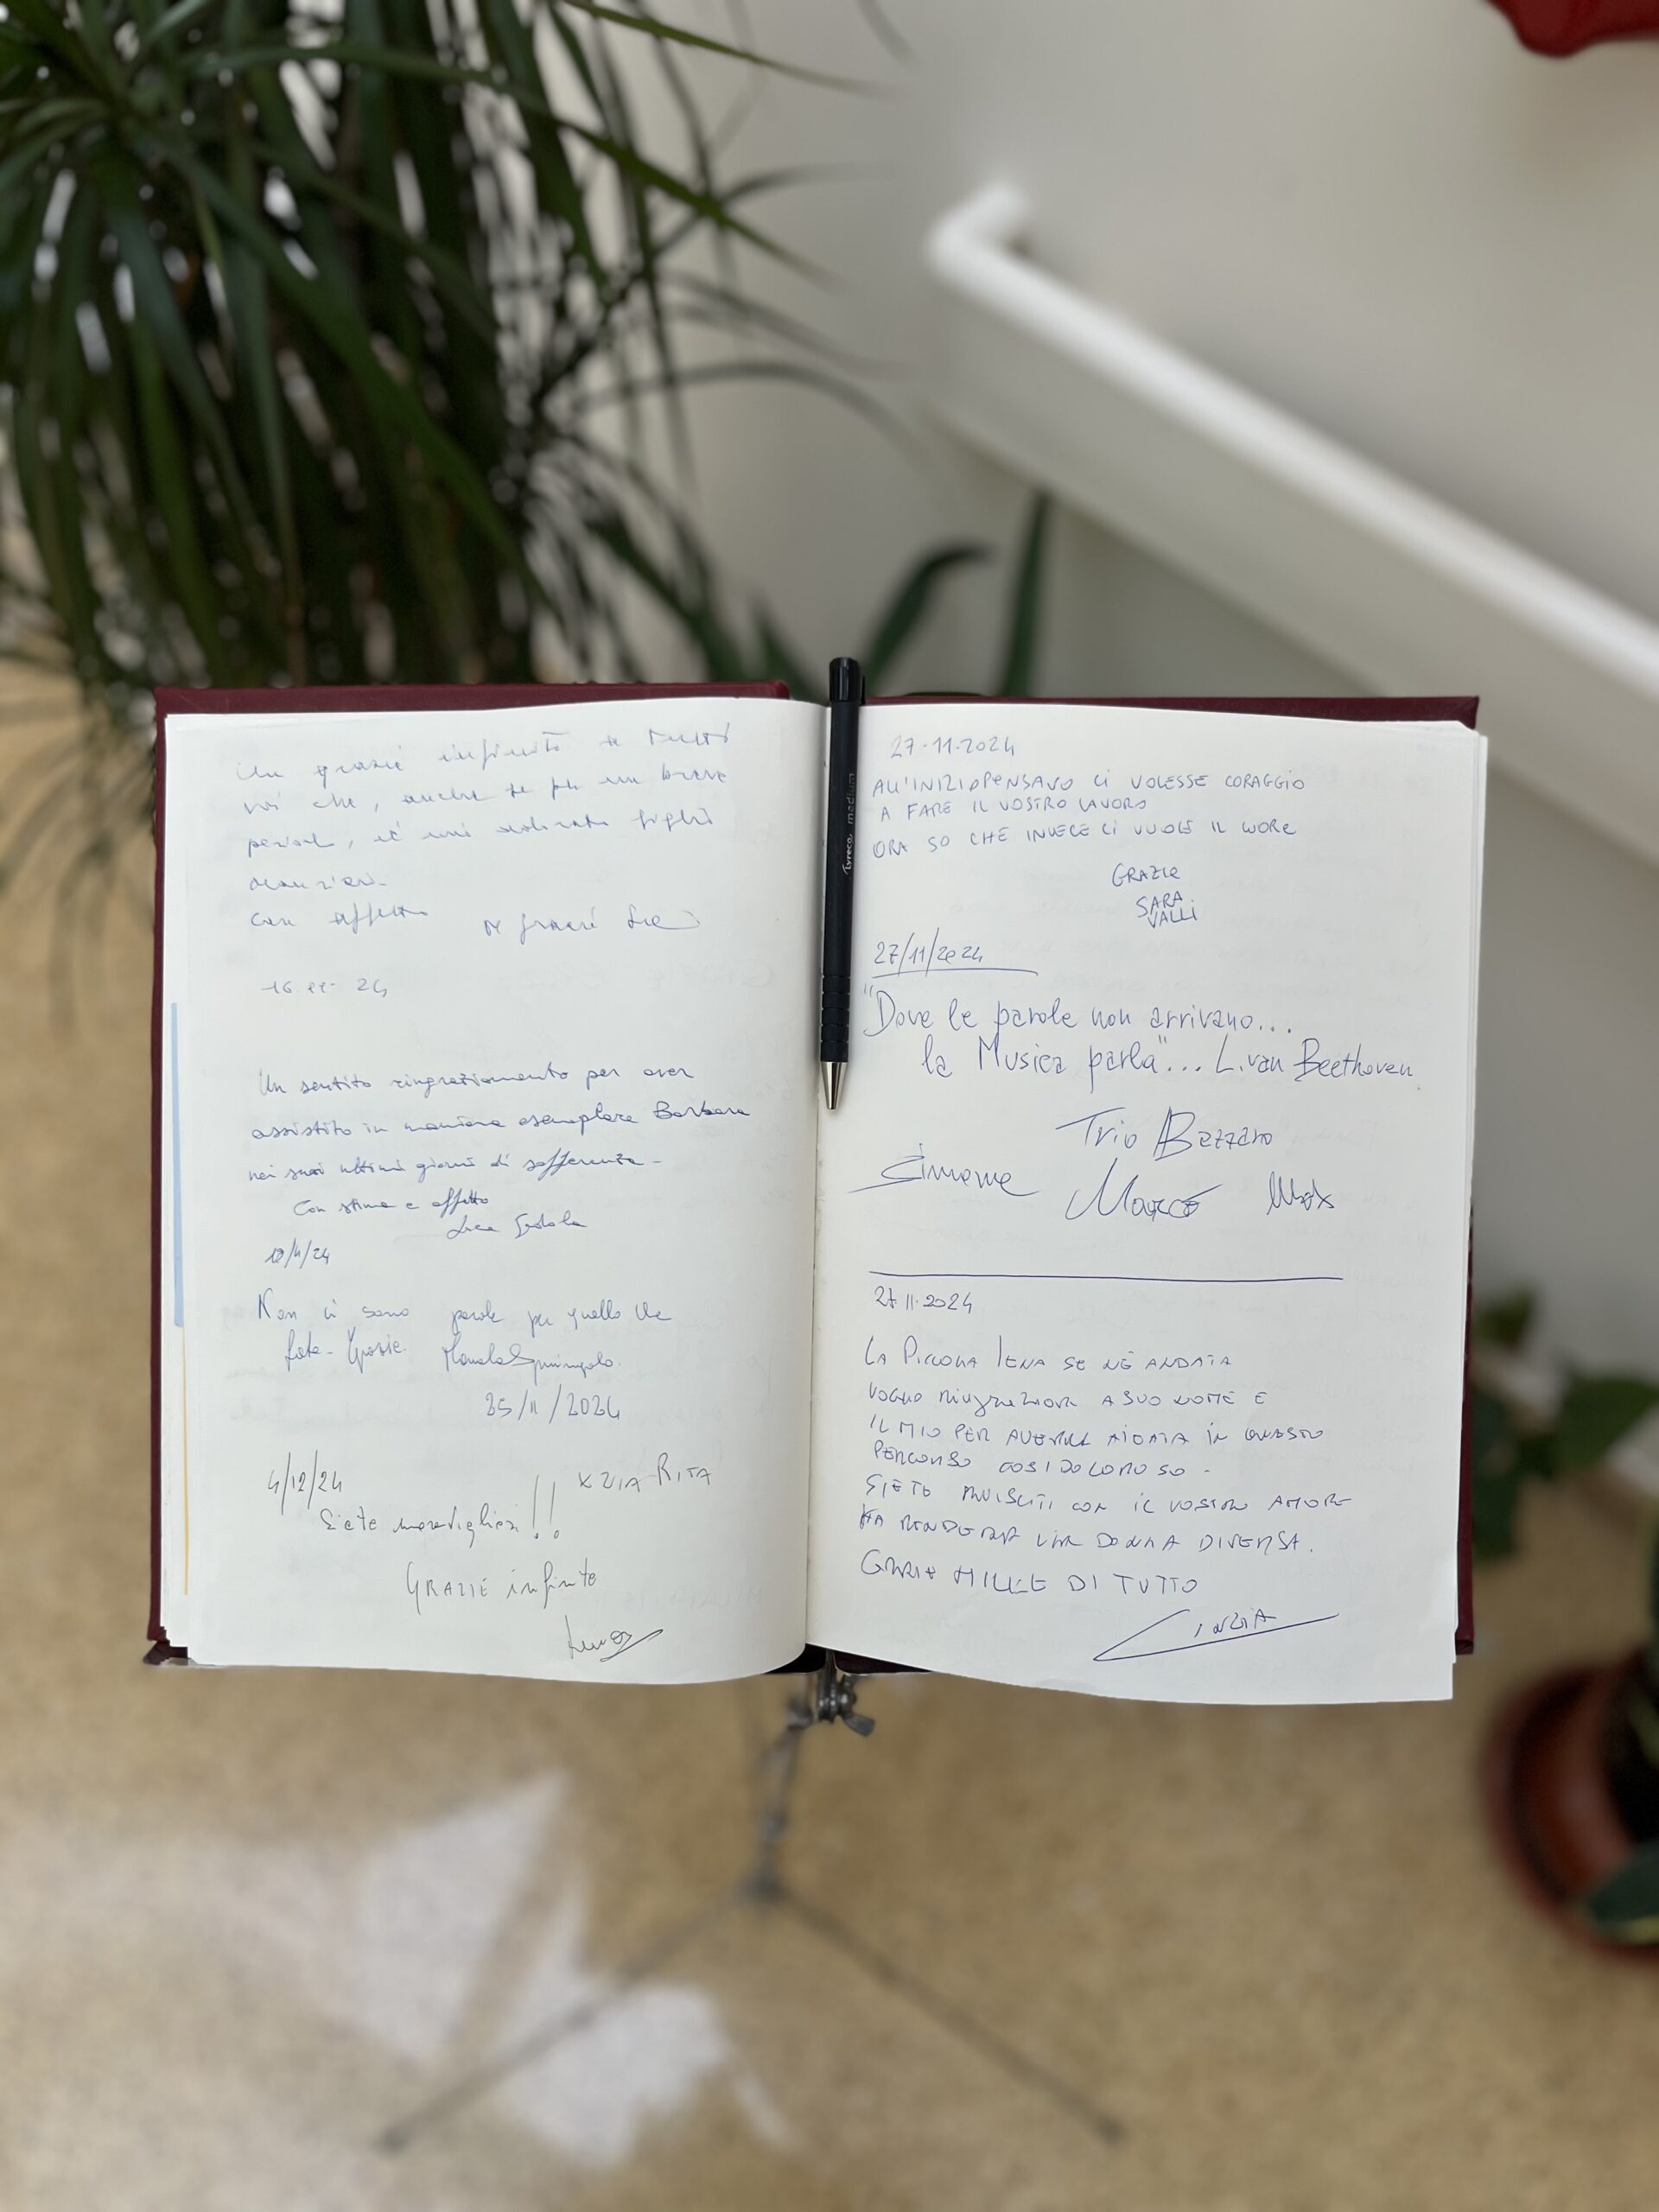 Un grazie infinito a tutti
voi che, anche se per un breve
con affetto
16.11.24
Un sentito ringraziamento per aver
assistito in maniera esemplare Barbara
nei suoi ultimi giorni di sofferenza-
Con stima e affetto
Luca
Non ci sono parole per quello che
fate- Grazie.
25/11/2024
4/12/24
x ZIA RITA
Siete meravigliosi!!
GRAZIE infinite
Tyreco medium
27-11-2024
All'INIZIO PENSAVO CI VOLESSE CORAGGIO
A FARE IL VOSTRO LAVORO
ORA SO CHE INVECE CI VUOLE IL CUORE
GRAZIE
SARA
VALLI
27/11/2024
"Dove le parole non arrivano...
la Musica parla"... L.van Beethoven
Trio
Simone Marco Max
27.11.2024
LA PICCOLA IENA SE NÈ ANDATA
VOGLIO RINGRAZIARE A SUO NOME E
IL MIO PER AVERLA AIUTATA IN QUESTO
PERCORSO COSI DOLOROSO -
SIETE RIUSCITI CON IL VOSTRO AMORE
HA RENDERLA UNA DONNA DIVERSA.
GRAZIE MILLE DI TUTTO
CINZIA